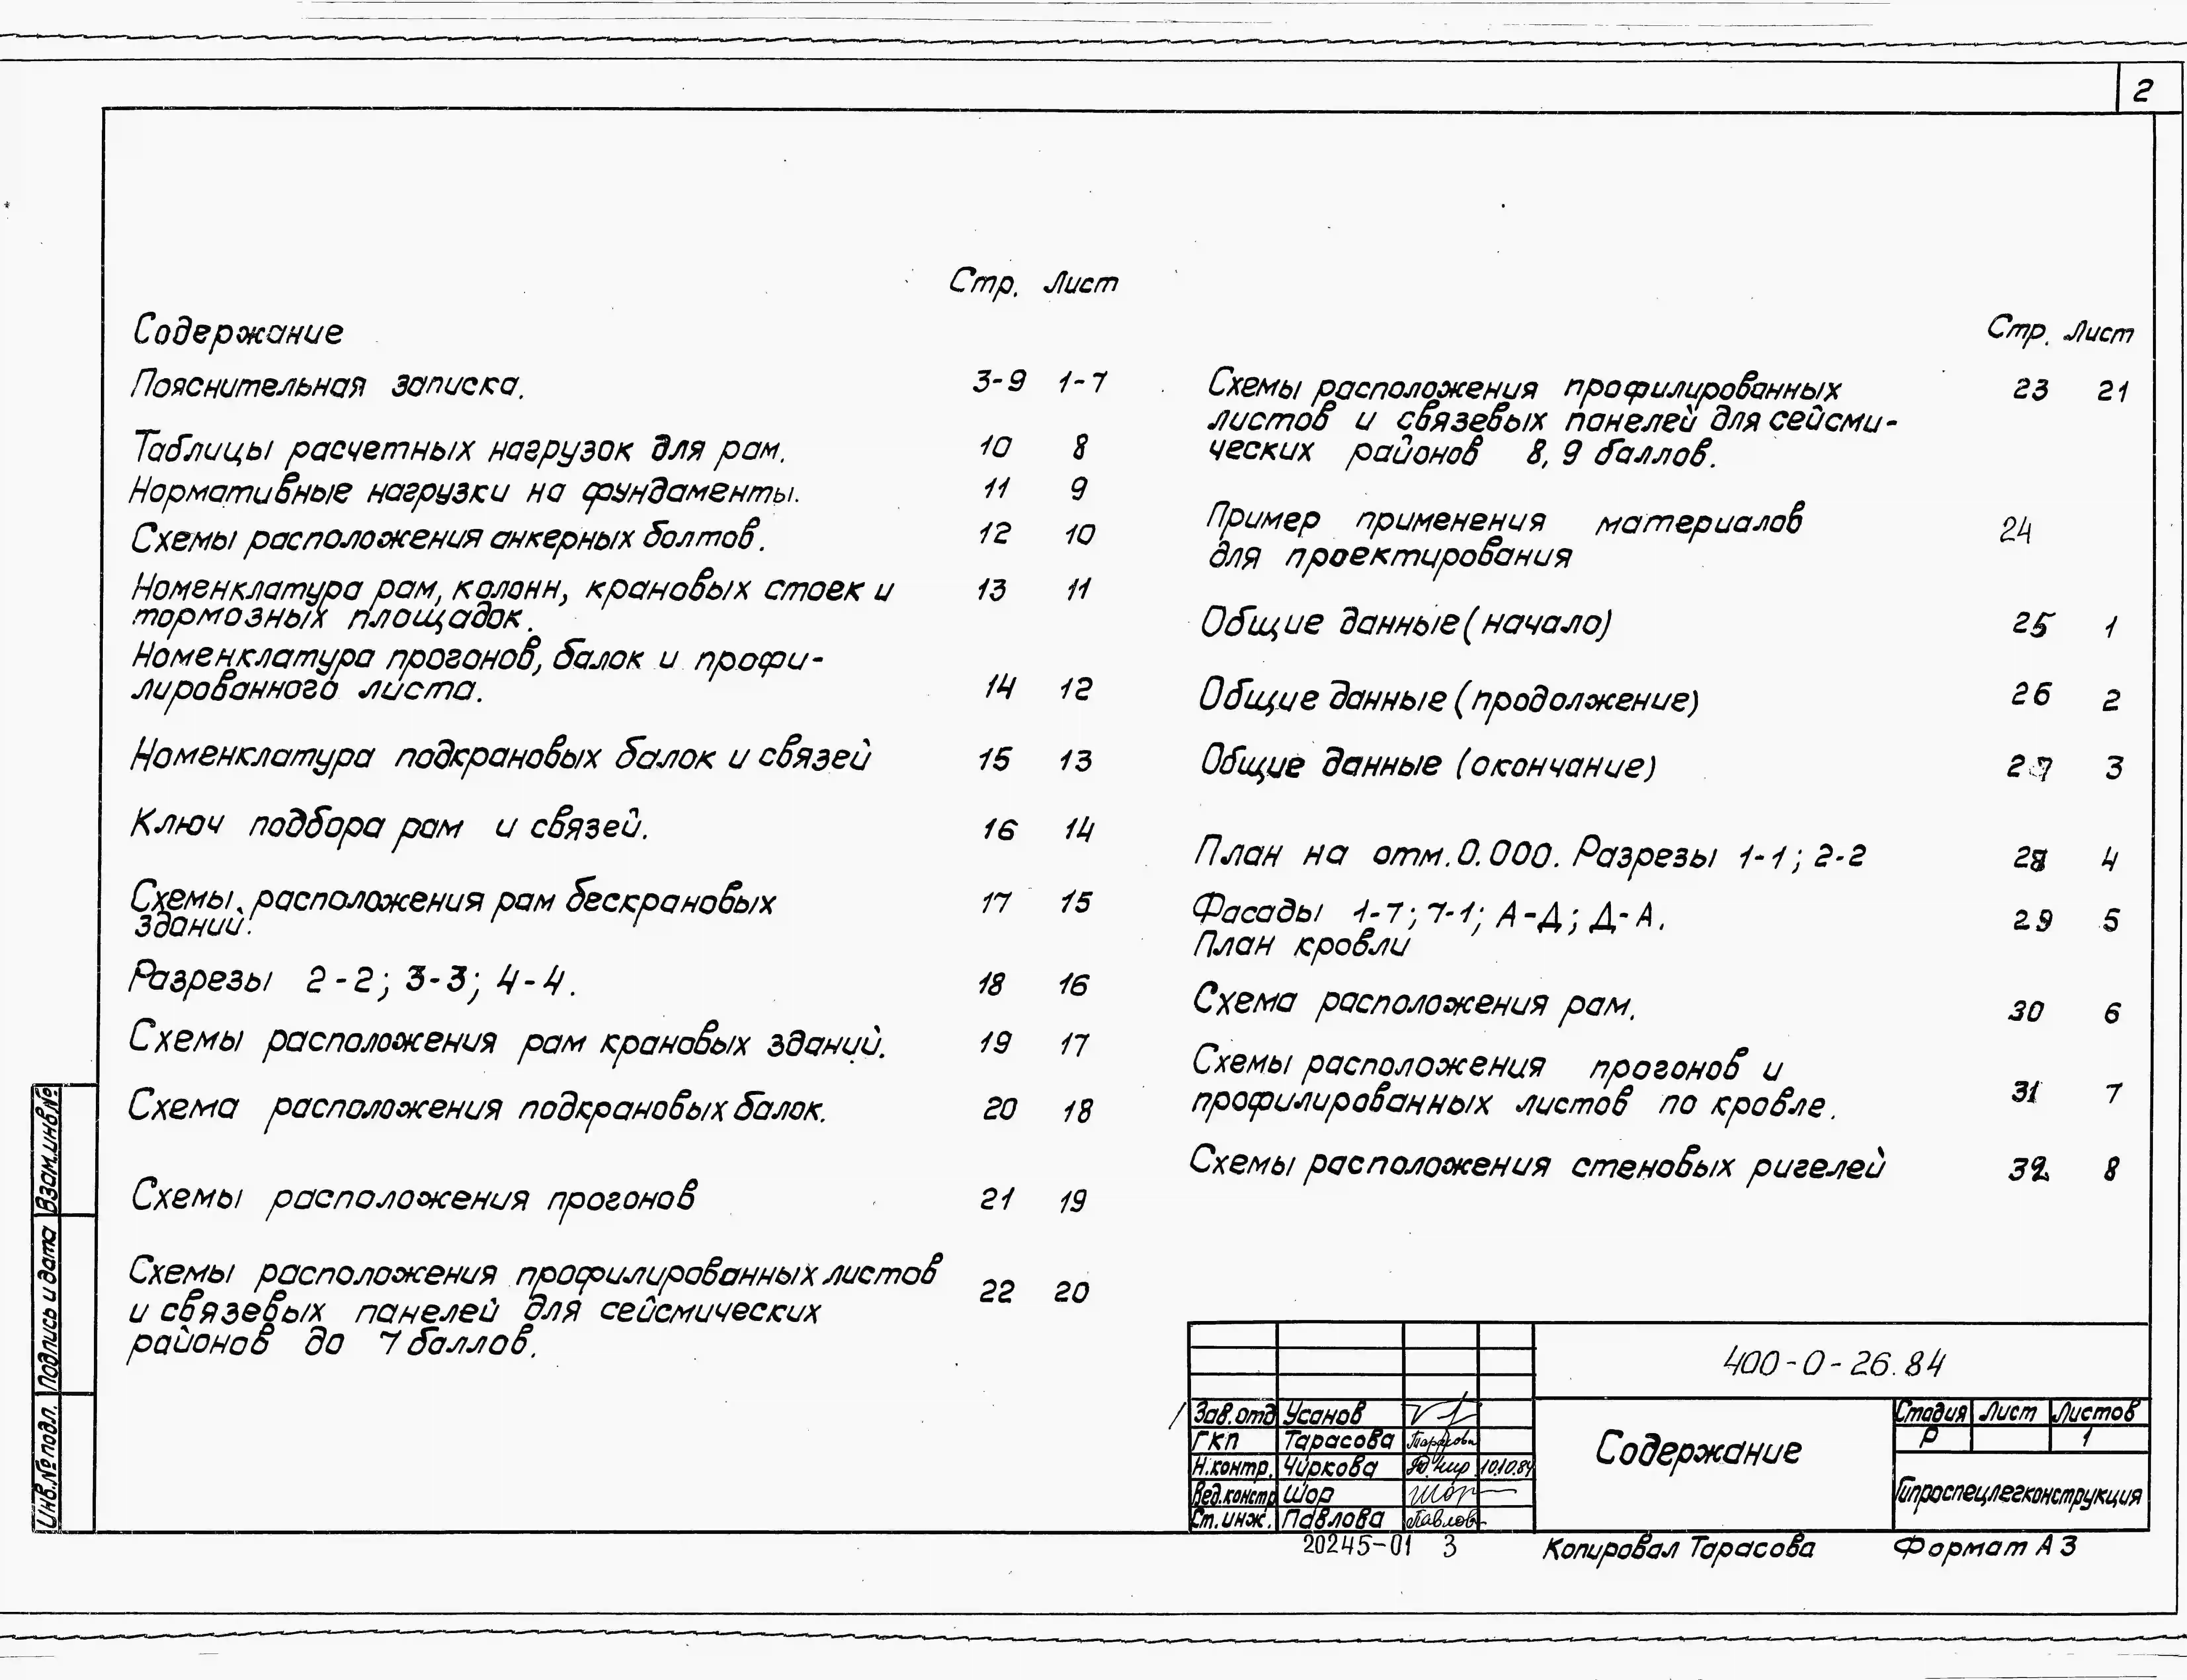 2
Стр. Лист
Содержание
Пояснительная записка. 3-9 1-7
Таблицы расчетных нагрузок для рам. 10 8
Нормативные нагрузки на фундаменты. 11 9
Схемы расположения анкерных болтов. 12 10
Номенклатура рам, колонн, крановых стоек и 13 11
тормозных площадок.
Номенклатура прогонов, балок и профи-
лированного листа. 14 12
Номенклатура подкрановых балок и связей 15 13
Ключ подбора рам и связей. 16 14
Схемы расположения рам бескрановых 17 15
зданий.
Разрезы 2-2; 3-3; 4-4. 18 16
Схемы расположения рам крановых зданий. 19 17
Схема расположения подкрановых балок. 20 18
Схемы расположения прогонов 21 19
Схемы расположения профилированных листов 22 20
и связевых панелей для сейсмических
районов до 7 баллов.
Стр. Лист
Схемы расположения профилированных 23 21
листов и связевых панелей для сейсми-
ческих районов 8, 9 баллов.
Пример применения материалов 24
для проектирования
Общие данные (начало) 25 1
Общие данные (продолжение) 26 2
Общие данные (окончание) 27 3
План на отм. 0.000. Разрезы 1-1; 2-2 28 4
Фасады 1-7; 7-1; А-Д; Д-А. 29 5
План кровли
Схема расположения рам. 30 6
Схемы расположения прогонов и
профилированных листов по кровле. 31 7
Схемы расположения стеновых ригелей 32 8
Взам.инв.№
Подпись и дата
Инв.№ подл.
400-0-26.84
Зав.отд Усанов
ГКП Тарасова Тарасова
Н.контр. Чиркова 10.10.84
Вед.констр Шор Шор
Ст.инж. Павлова Павлов
Содержание
Стадия Лист Листов
Р 1
Гипроспецлегконструкция
20245-01 3
Копировал Тарасова
Формат А3